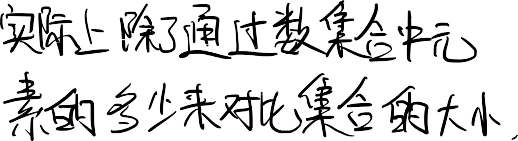 实际上除了通过数集合中元
素的多少来对比集合的大小.